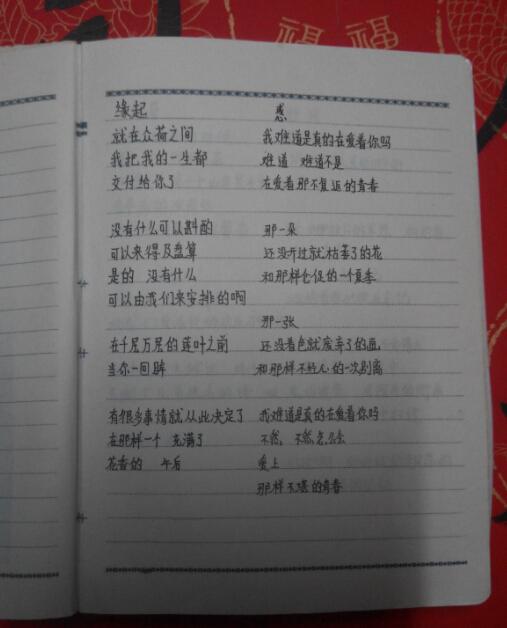 福福
缘起
就在众荷之间
我把我的一生都
交付给你了
没有什么可以斟酌
可以来得及盘算
是的 没有什么
可以由我们来安排的啊
在千层万层的莲叶之前
当你一回眸
有很多事情就从此决定了
在那样一个 充满了
花香的 午后
惑
我难道是真的在爱着你吗
难道 难道不是
在爱着那不复返的青春
那一朵
还没开过就枯萎了的花
和那样仓促的一个夏季
那一张
还没着色就废弃了的画
和那样不经心的一次别离
我难道是真的在爱着你吗
不然, 不然怎么会
爱上
那样不堪的青春